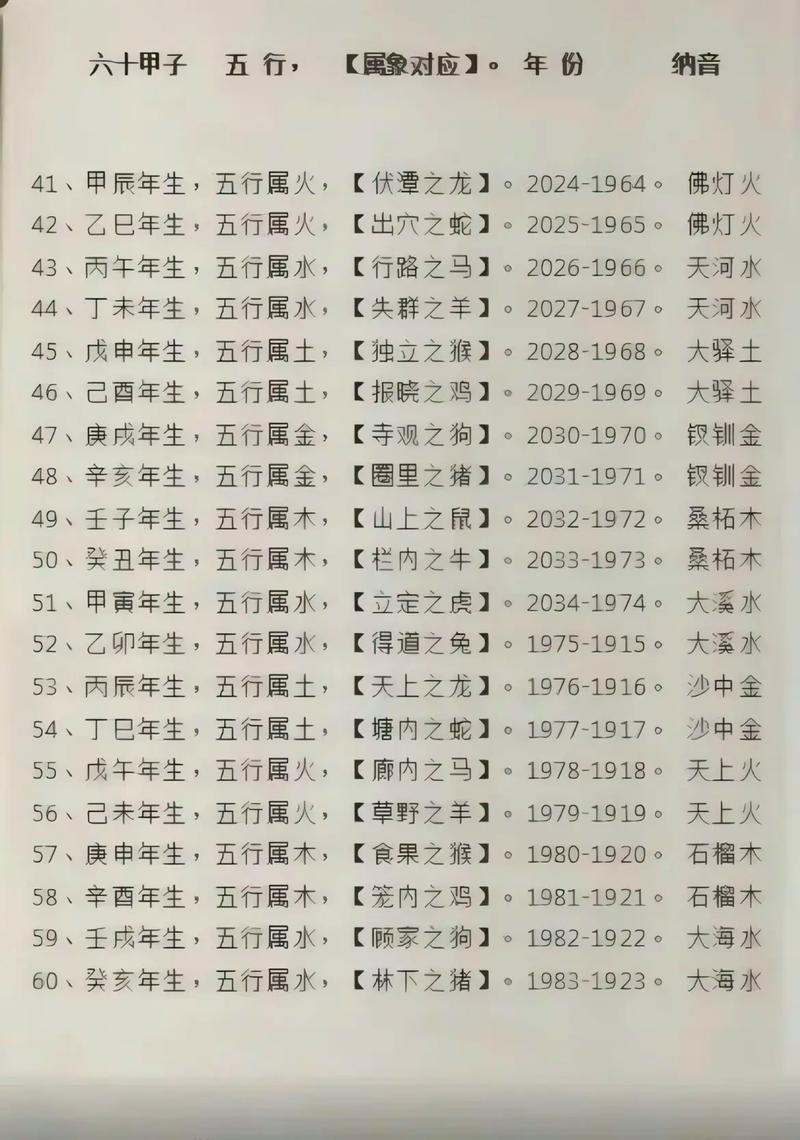 六十甲子 五行， 【属象对应】。 年份 纳音
41、甲辰年生，五行属火，【伏潭之龙】。2024-1964。 佛灯火
42、乙巳年生，五行属火，【出穴之蛇】。2025-1965。 佛灯火
43、丙午年生，五行属水，【行路之马】。2026-1966。 天河水
44、丁未年生，五行属水，【失群之羊】。2027-1967。 天河水
45、戊申年生，五行属土，【独立之猴】。2028-1968。 大驿土
46、己酉年生，五行属土，【报晓之鸡】。2029-1969。 大驿土
47、庚戌年生，五行属金，【寺观之狗】。2030-1970。 钗钏金
48、辛亥年生，五行属金，【圈里之猪】。2031-1971。 钗钏金
49、壬子年生，五行属木，【山上之鼠】。2032-1972。 桑柘木
50、癸丑年生，五行属木，【栏内之牛】。2033-1973。 桑柘木
51、甲寅年生，五行属水，【立定之虎】。2034-1974。 大溪水
52、乙卯年生，五行属水，【得道之兔】。1975-1915。 大溪水
53、丙辰年生，五行属土，【天上之龙】。1976-1916。 沙中金
54、丁巳年生，五行属土，【塘内之蛇】。1977-1917。 沙中金
55、戊午年生，五行属火，【廊内之马】。1978-1918。 天上火
56、己未年生，五行属火，【草野之羊】。1979-1919。 天上火
57、庚申年生，五行属木，【食果之猴】。1980-1920。 石榴木
58、辛酉年生，五行属木，【笼内之鸡】。1981-1921。 石榴木
59、壬戌年生，五行属水，【顾家之狗】。1982-1922。 大海水
60、癸亥年生，五行属水，【林下之猪】。1983-1923。 大海水